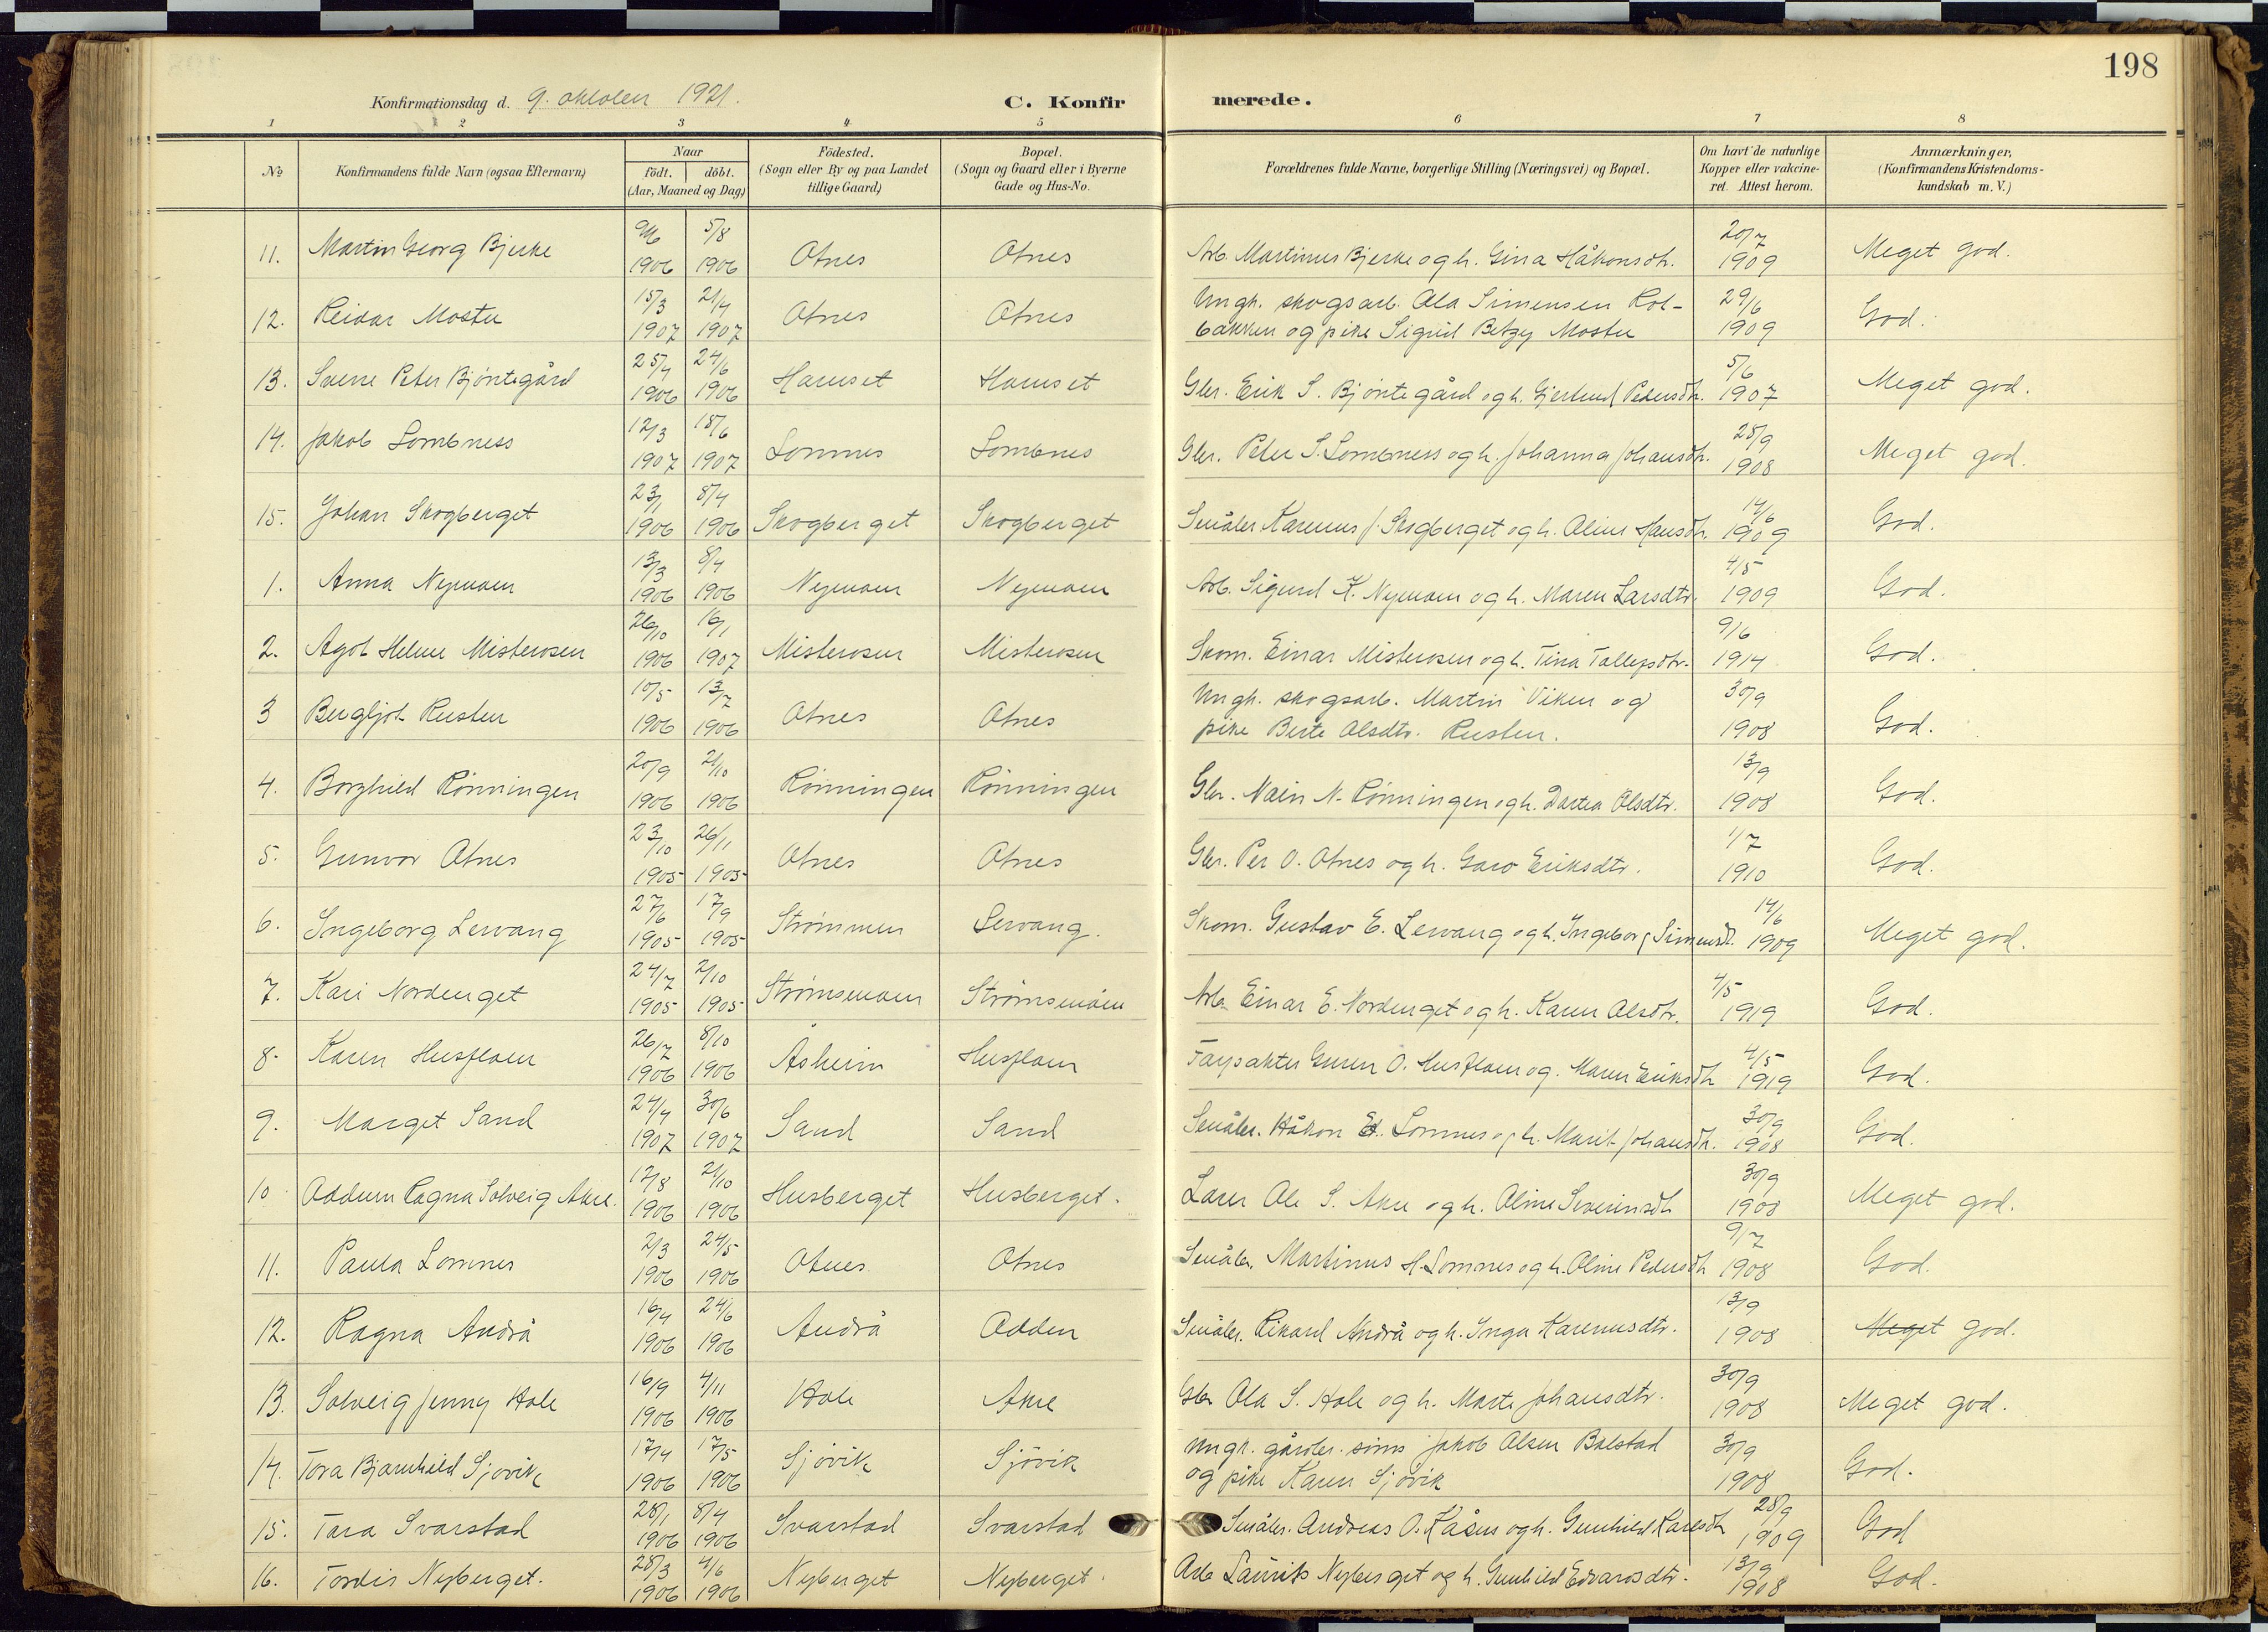 198
Konfirmationsdag d. 9. oktober 1921. C. Konfirmerede.
1 2 3 4 5 6 7 8
No Konfirmandens fulde Navn (ogsaa Efternavn) Naar født. døbt. (Aar, Maaned og Dag) Födested. (Sogn eller By og paa Landet tillige Gaard) Bopæl. (Sogn og Gaard eller i Byerne Gade og Hus-No. Forældrenes fulde Navne, borgerlige Stilling (Næringsvei) og Bopæl. Om havt de naturlige Kopper eller vakcineret. Attest herom. Anmærkninger, (Konfirmandens Kristendomskundskab m. V.)
11. Martin Georg Bjerke 1906 5/8 1906 Otnes Otnes Arb. Martinus Bjerke og h. Gina Håkonsdtr. 20/7 1909 Meget god.
12. Reidar Mosten 15/3 1907 21/4 1907 Otnes Otnes Ungk. skogsarb. Ola Simensen Kolbakken og pike Sigrid Betzy Mosten 29/6 1909 God.
13. Sverre Peter Bjøntegård 25/4 1906 24/6 1906 Harnset Harnset Gbr. Erik S. Bjøntegård og h. Gjertrud Pedersdtr. 5/6 1907 Meget god.
14. Jakob Lombness 12/3 1907 18/6 1907 Lomnes Lombnes Gbr. Peter S. Lombness og h. Johanna Johansdtr. 28/9 1908 Meget god.
15. Johan Skogberget 23/1 1906 8/4 1906 Skogberget Skogberget Småbr. Karenus J. Skogberget og h. Oline Hansdtr. 14/6 1909 God.
1. Anna Nymoen 13/3 1906 8/4 1906 Nymoen Nymoen Arb. Sigurd K. Nymoen og h. Maren Larsdtr. 4/5 1909 God.
2. Agot Helene Misterosen 26/10 1906 16/1 1907 Misterosen Misterosen Skom. Einar Misterosen og h. Tina Tollefsdtr. 9/6 1914 God.
3 Bergljot Rusten 10/5 1906 13/7 1906 Otnes Otnes Ungk. skogsarb. Martin Viken og pike Berte Olsdtr. Rusten. 30/9 1908 God.
4. Borghild Rønningen 20/9 1906 21/10 1906 Rønningen Rønningen Gbr. N. Rønningen og h. Dartea Olsdtr. 13/9 1908 God.
5. Gunvor Otnes 23/10 1905 26/11 1905 Otnes Otnes Gbr. Per O. Otnes og h. Guro Eriksdtr. 1/7 1910 God.
6. Ingeborg Lervang 27/6 1905 17/9 1905 Strømmen Lervang. Skom. Gustav E. Lervang og h. Ingeborg Simensdt. 14/6 1909 Meget god.
7. Kari Nordenget 24/7 1905 2/10 1905 Strømsmoen Strømsmoen Arb. Einar E. Nordenget og h. Karen Olsdtr. 4/5 1919 God.
8. Karen Husfloen 26/7 1906 8/10 1906 Åsheim Husfloen Forpakter O. Husfloen og Maren Eriksdtr 4/5 1919 God.
9. Marget Sand 24/4 1907 30/6 1907 Sand Sand Småbr. Håkon E. Lomnes og h. Marit Johansdtr. 30/9 1908 God.
10 Oddrun Ragna Solveig Akre. 12/8 1906 21/10 1906 Husberget Husberget. Lærer Ole S. Akre og h. Oline Severinsdtr 30/9 1908 Meget god.
11. Paula Lomnes 2/3 1906 24/5 1906 Otnes Otnes Småbr. Martinus H. Lomnes og h. Oline Pedersdtr 9/7 1908 God.
12. Ragna Andrå 16/4 1906 24/6 1906 Andrå Odden Småbr. Rikard Andrå og h. Inga Karenusdtr. 13/9 1908 Meget god.
13. Solveig Jenny Hole 16/9 1906 4/11 1906 Hole Akre Gbr Ola S. Hole og h. Marte Johansdtr. 30/9 1908 Meget god.
14. Tora Bjarnhild Sjøvik 17/4 1906 17/5 1906 Sjøvik Sjøvik Ungk. gårdbr. sønn Jakob Olsen Bolstad og pike Karen Sjøvik 30/9 1908 God.
15. Tora Svarstad 28/1 1906 8/4 1906 Svarstad Svarstad Småbr. Andreas O. Kåsen og h. Gunhild Karlsdtr 28/9 1909 God
16. Tordis Nyberget. 28/3 1906 4/6 1906 Nyberget Nyberget. Arb Laurits Nyberget og h. Gunhild Edvardsdtr. 13/9 1908 God.